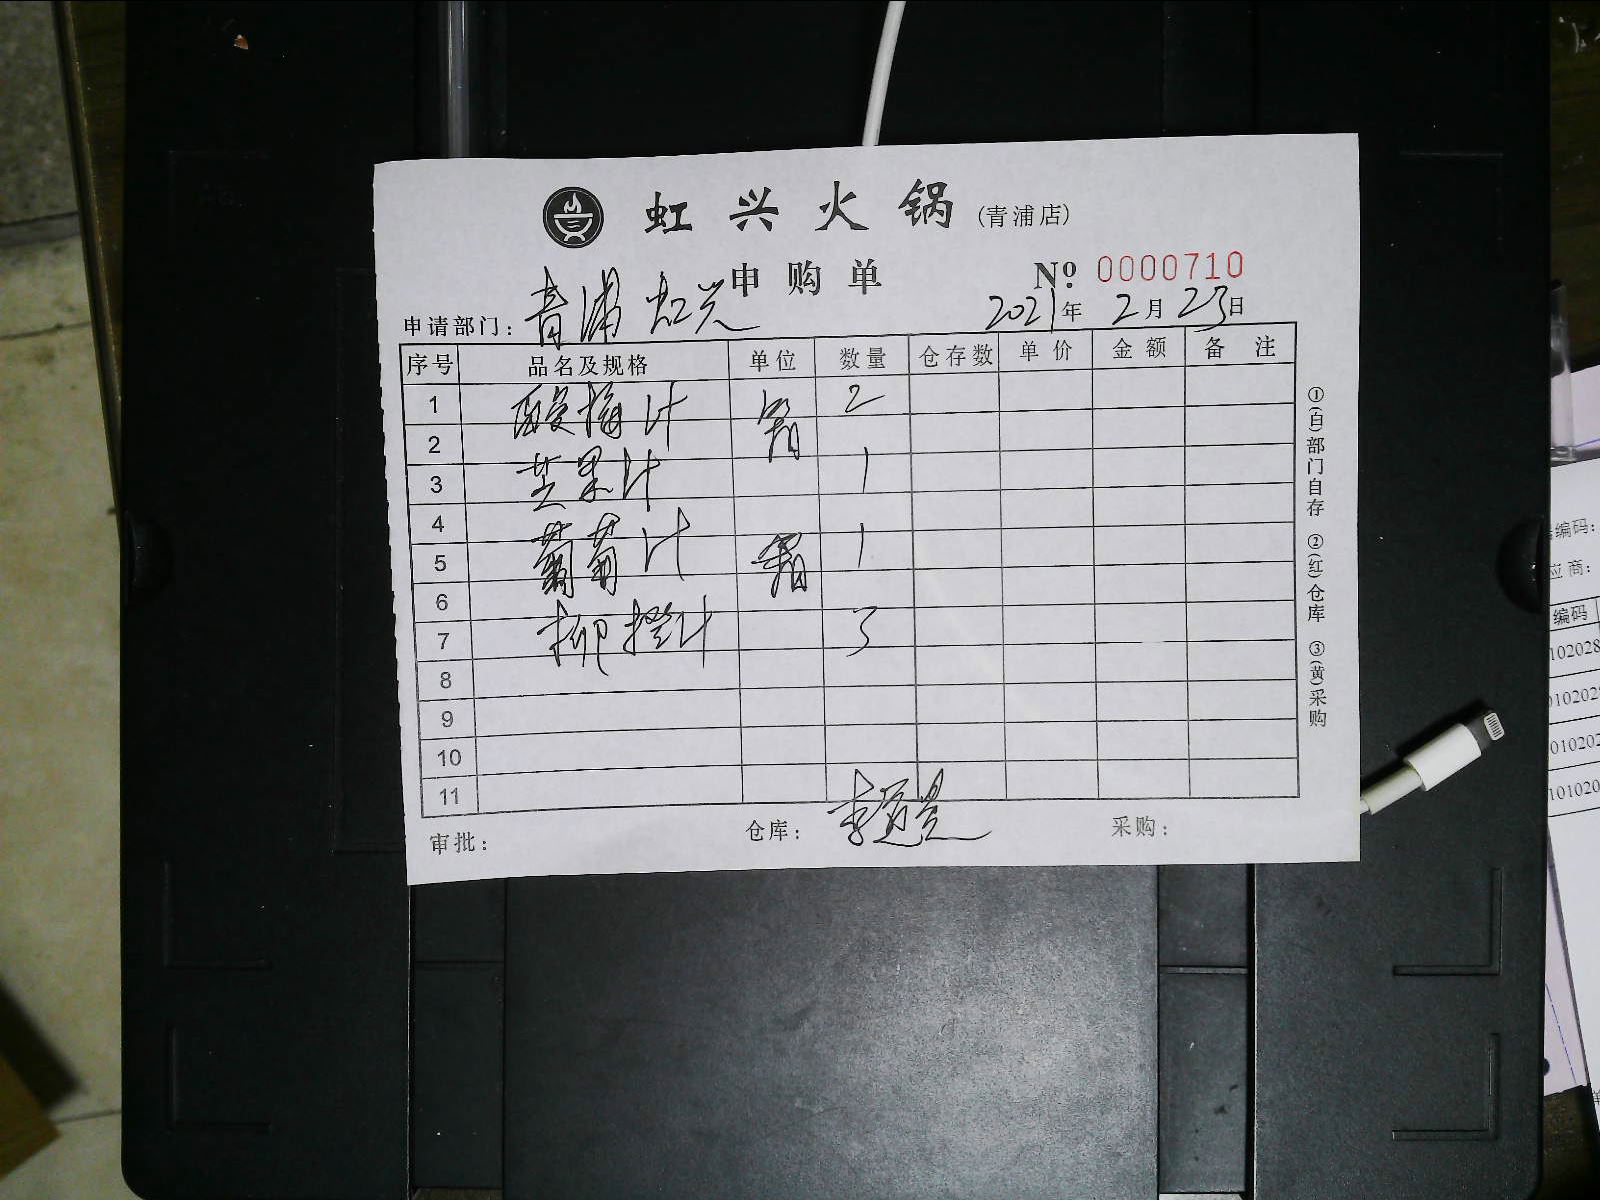 虹兴火锅(青浦店)
申购单 № 0000710
申请部门：青浦虹兴 2021年2月23日
序号 品名及规格 单位 数量 仓存数 单价 金额 备注
1 酸梅汁 箱 2
2
3 芒果汁 1
4
5 葡萄汁 箱 1
6
7 柳橙汁 3
8
9
10
11
审批： 仓库： 采购：
①(白)部门自存 ②(红)仓库 ③(黄)采购
编码：
应商：
编码